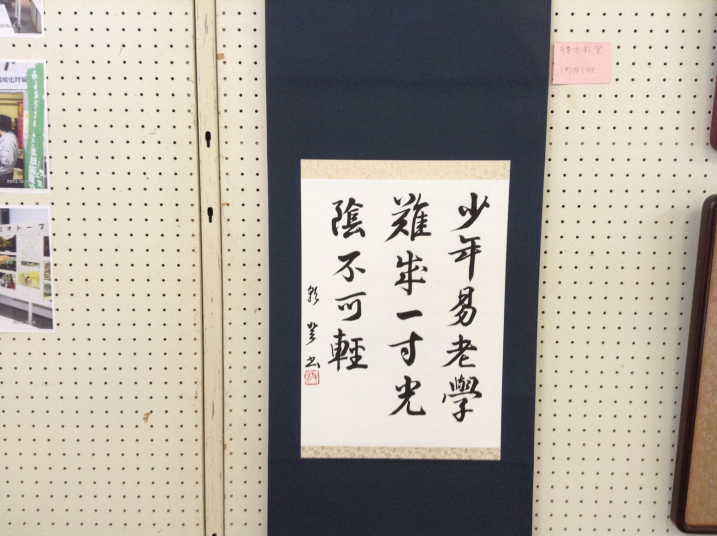 少年易老學
難成一寸光
陰不可輕